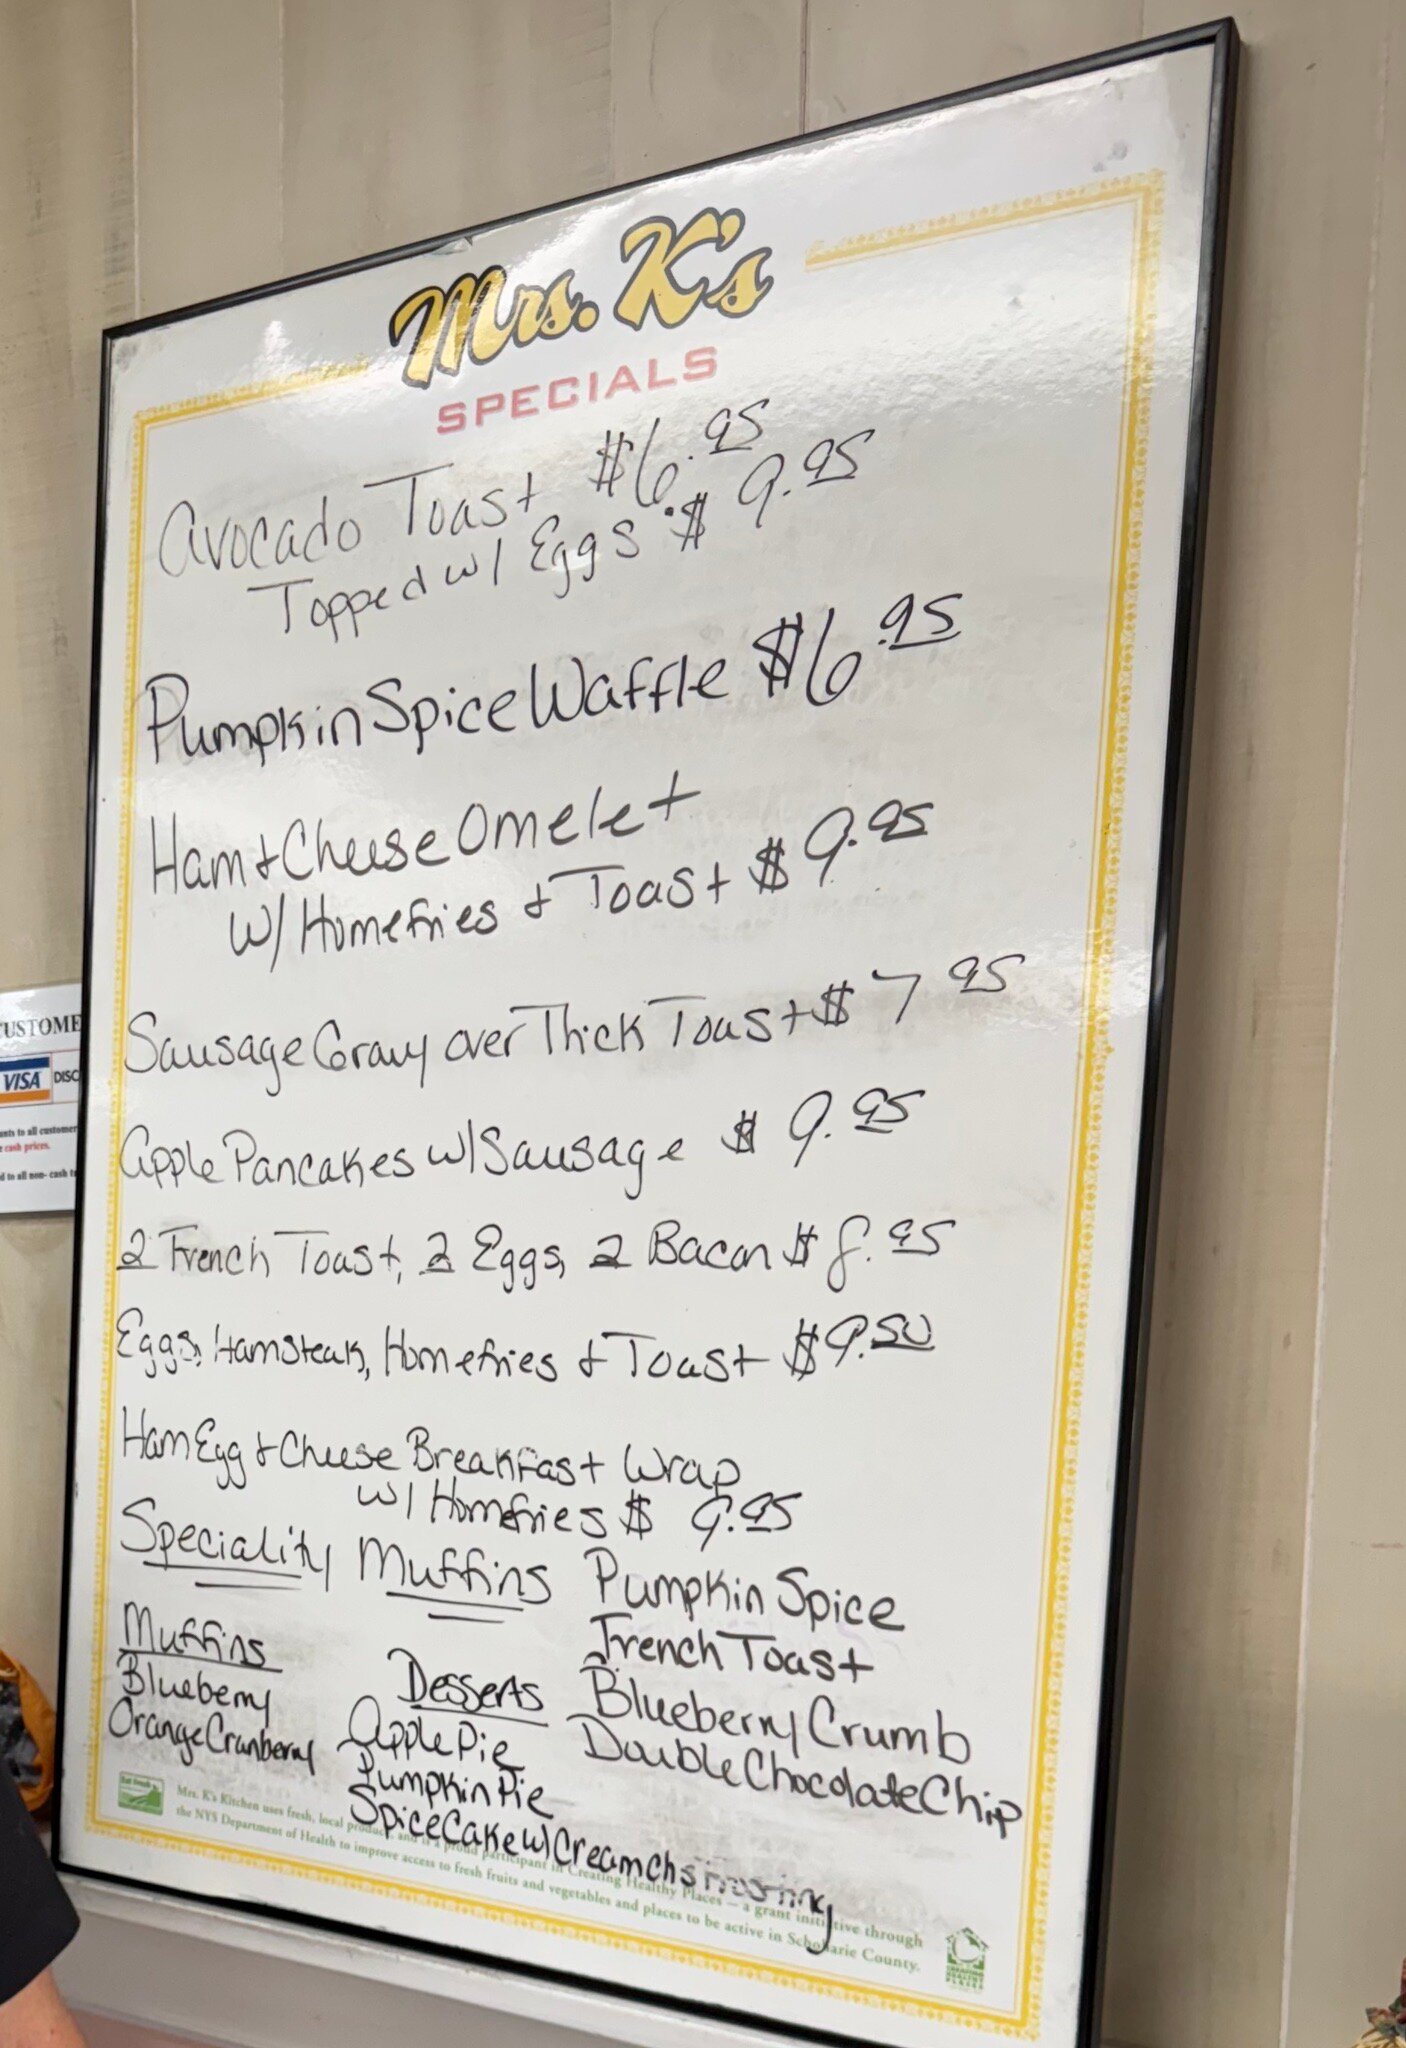 Mrs. K's
SPECIALS
Avocado Toast $6.95
Topped w/ Eggs $9.95
Pumpkin Spice Waffle $6.95
Ham + Cheese Omelet
w/ Homefries + Toast $9.95
Sausage Gravy over Thick Toast $7 95
Apple Pancakes w/ Sausage $9.95
2 French Toast, 2 Eggs, 2 Bacon $8.95
Eggs, Hamsteak, Homefries + Toast $9.50
Ham Egg + Cheese Breakfast Wrap
w/ Homefries $9.95
Speciality Muffins
Pumpkin Spice
French Toast
Blueberry Crumb
Double Chocolate Chip
Muffins
Blueberry
Orange Cranberry
Desserts
Apple Pie
Pumpkin Pie
Spice Cake w/ Cream Chs Frosting
Mrs. K's Kitchen uses fresh, local produce, and is a proud participant in Creating Healthy Places – a grant initiative through
the NYS Department of Health to improve access to fresh fruits and vegetables and places to be active in Schoharie County.
CREATING
HEALTHY
PLACES
CUSTOME
VISA DISC
ents to all customer
cash prices.
d to all non- cash t